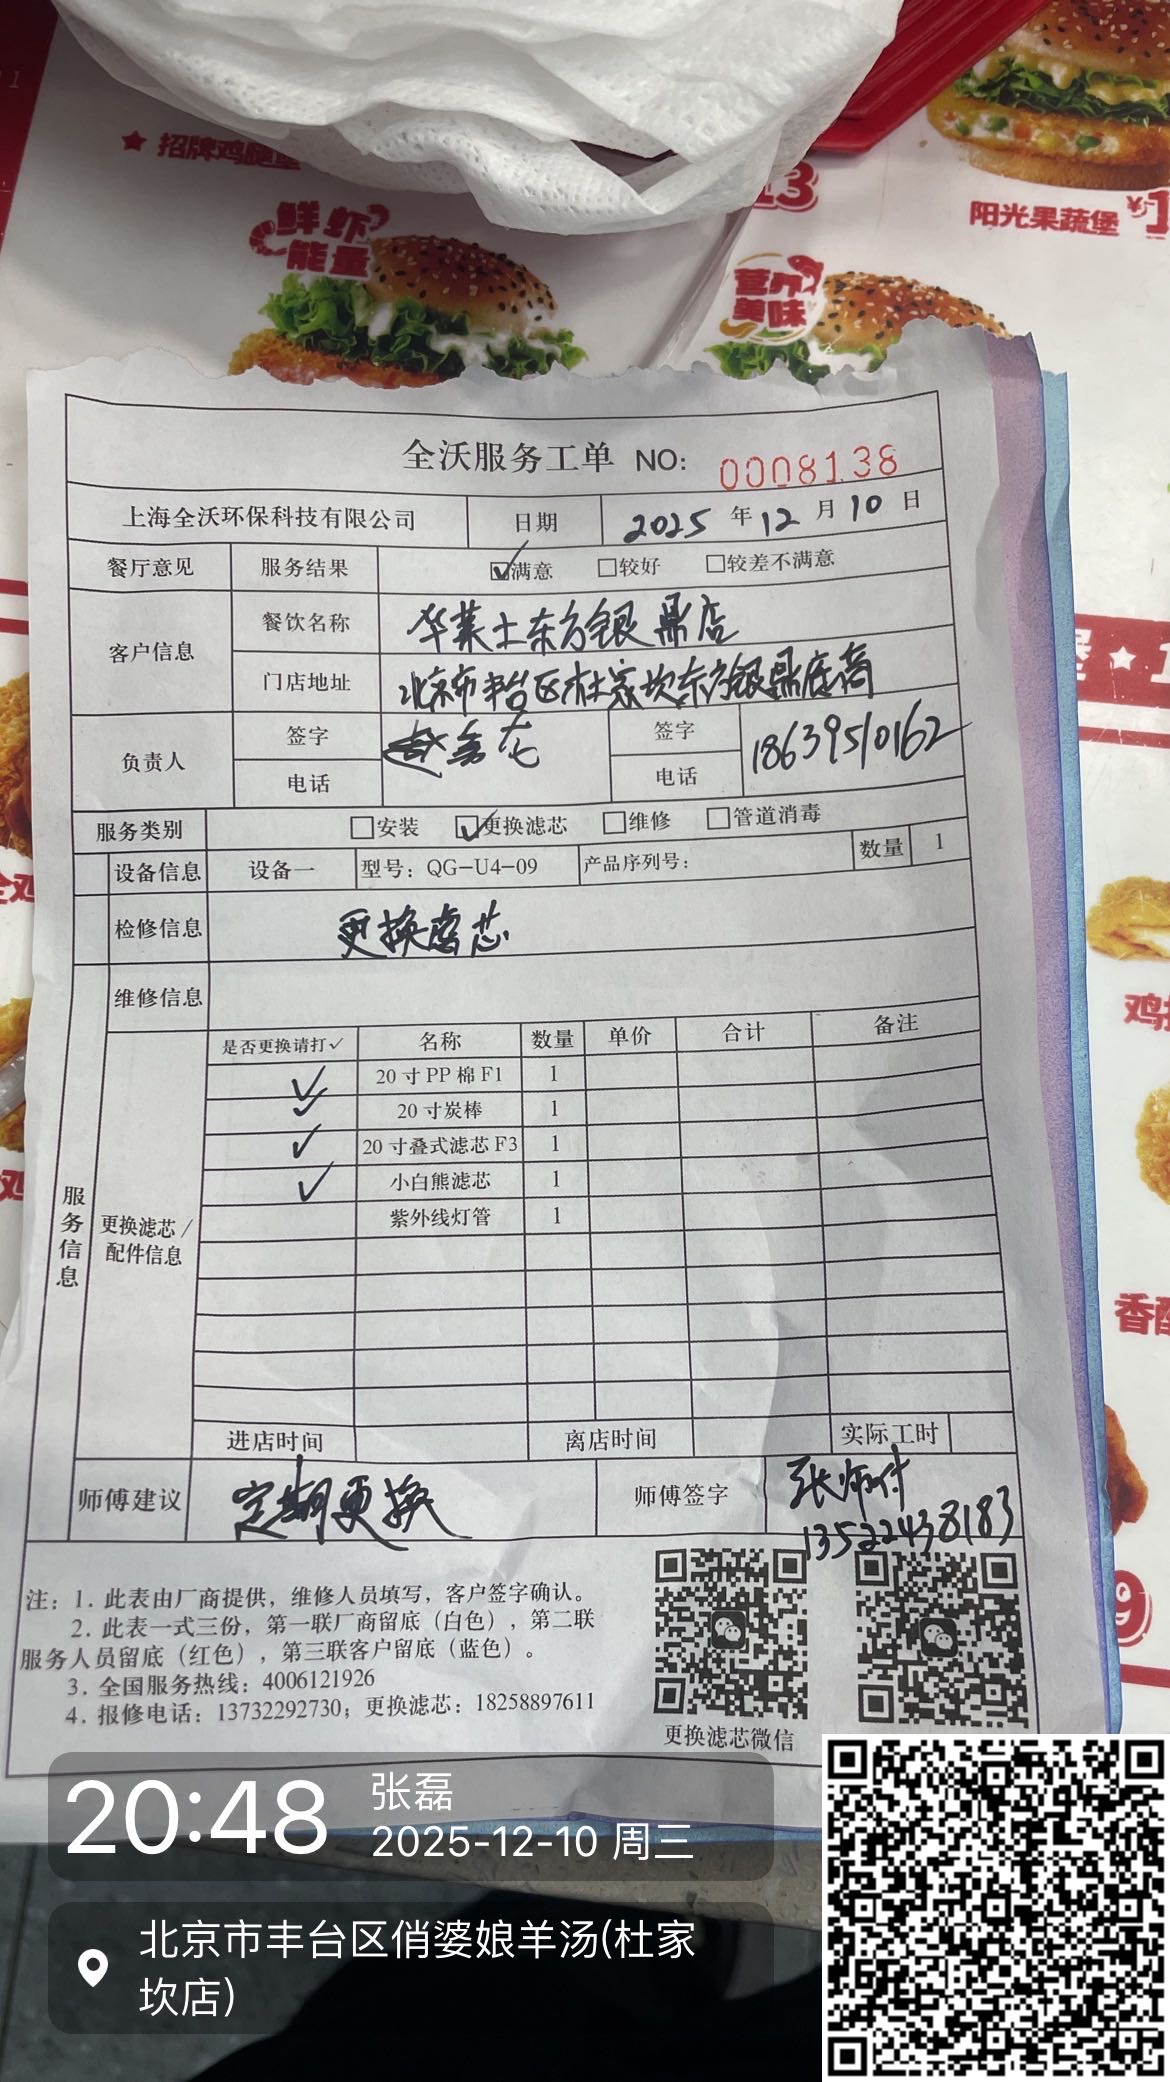 招牌鸡腿堡
13
鲜虾
能量
阳光果蔬堡 ¥1
营养
美味
全沃服务工单 NO: 0008138
上海全沃环保科技有限公司 日期 2025 年 12 月 10 日
餐厅意见 服务结果 ☑满意 □较好 □较差不满意
客户信息 餐饮名称 华莱士东方银鼎店
门店地址 北京市丰台区杜家坎东方银鼎底商
负责人 签字 签字 18639510162
电话 电话
服务类别 □安装 ☑更换滤芯 □维修 □管道消毒
设备信息 设备一 型号：QG-U4-09 产品序列号： 数量 1
检修信息 更换滤芯
维修信息
服务信息
更换滤芯/
配件信息
是否更换请打✓ 名称 数量 单价 合计 备注
✓ 20寸PP棉F1 1
✓ 20寸炭棒 1
✓ 20寸叠式滤芯F3 1
✓ 小白熊滤芯 1
紫外线灯管 1
进店时间 离店时间 实际工时
师傅建议 定期更换 师傅签字 张师付
13522438183
注：1. 此表由厂商提供，维修人员填写，客户签字确认。
2. 此表一式三份，第一联厂商留底（白色），第二联
服务人员留底（红色），第三联客户留底（蓝色）。
3. 全国服务热线：4006121926
4. 报修电话：13732292730；更换滤芯：18258897611
更换滤芯微信
香
9
20:48 张磊
2025-12-10 周三
北京市丰台区俏婆娘羊汤(杜家
坎店)